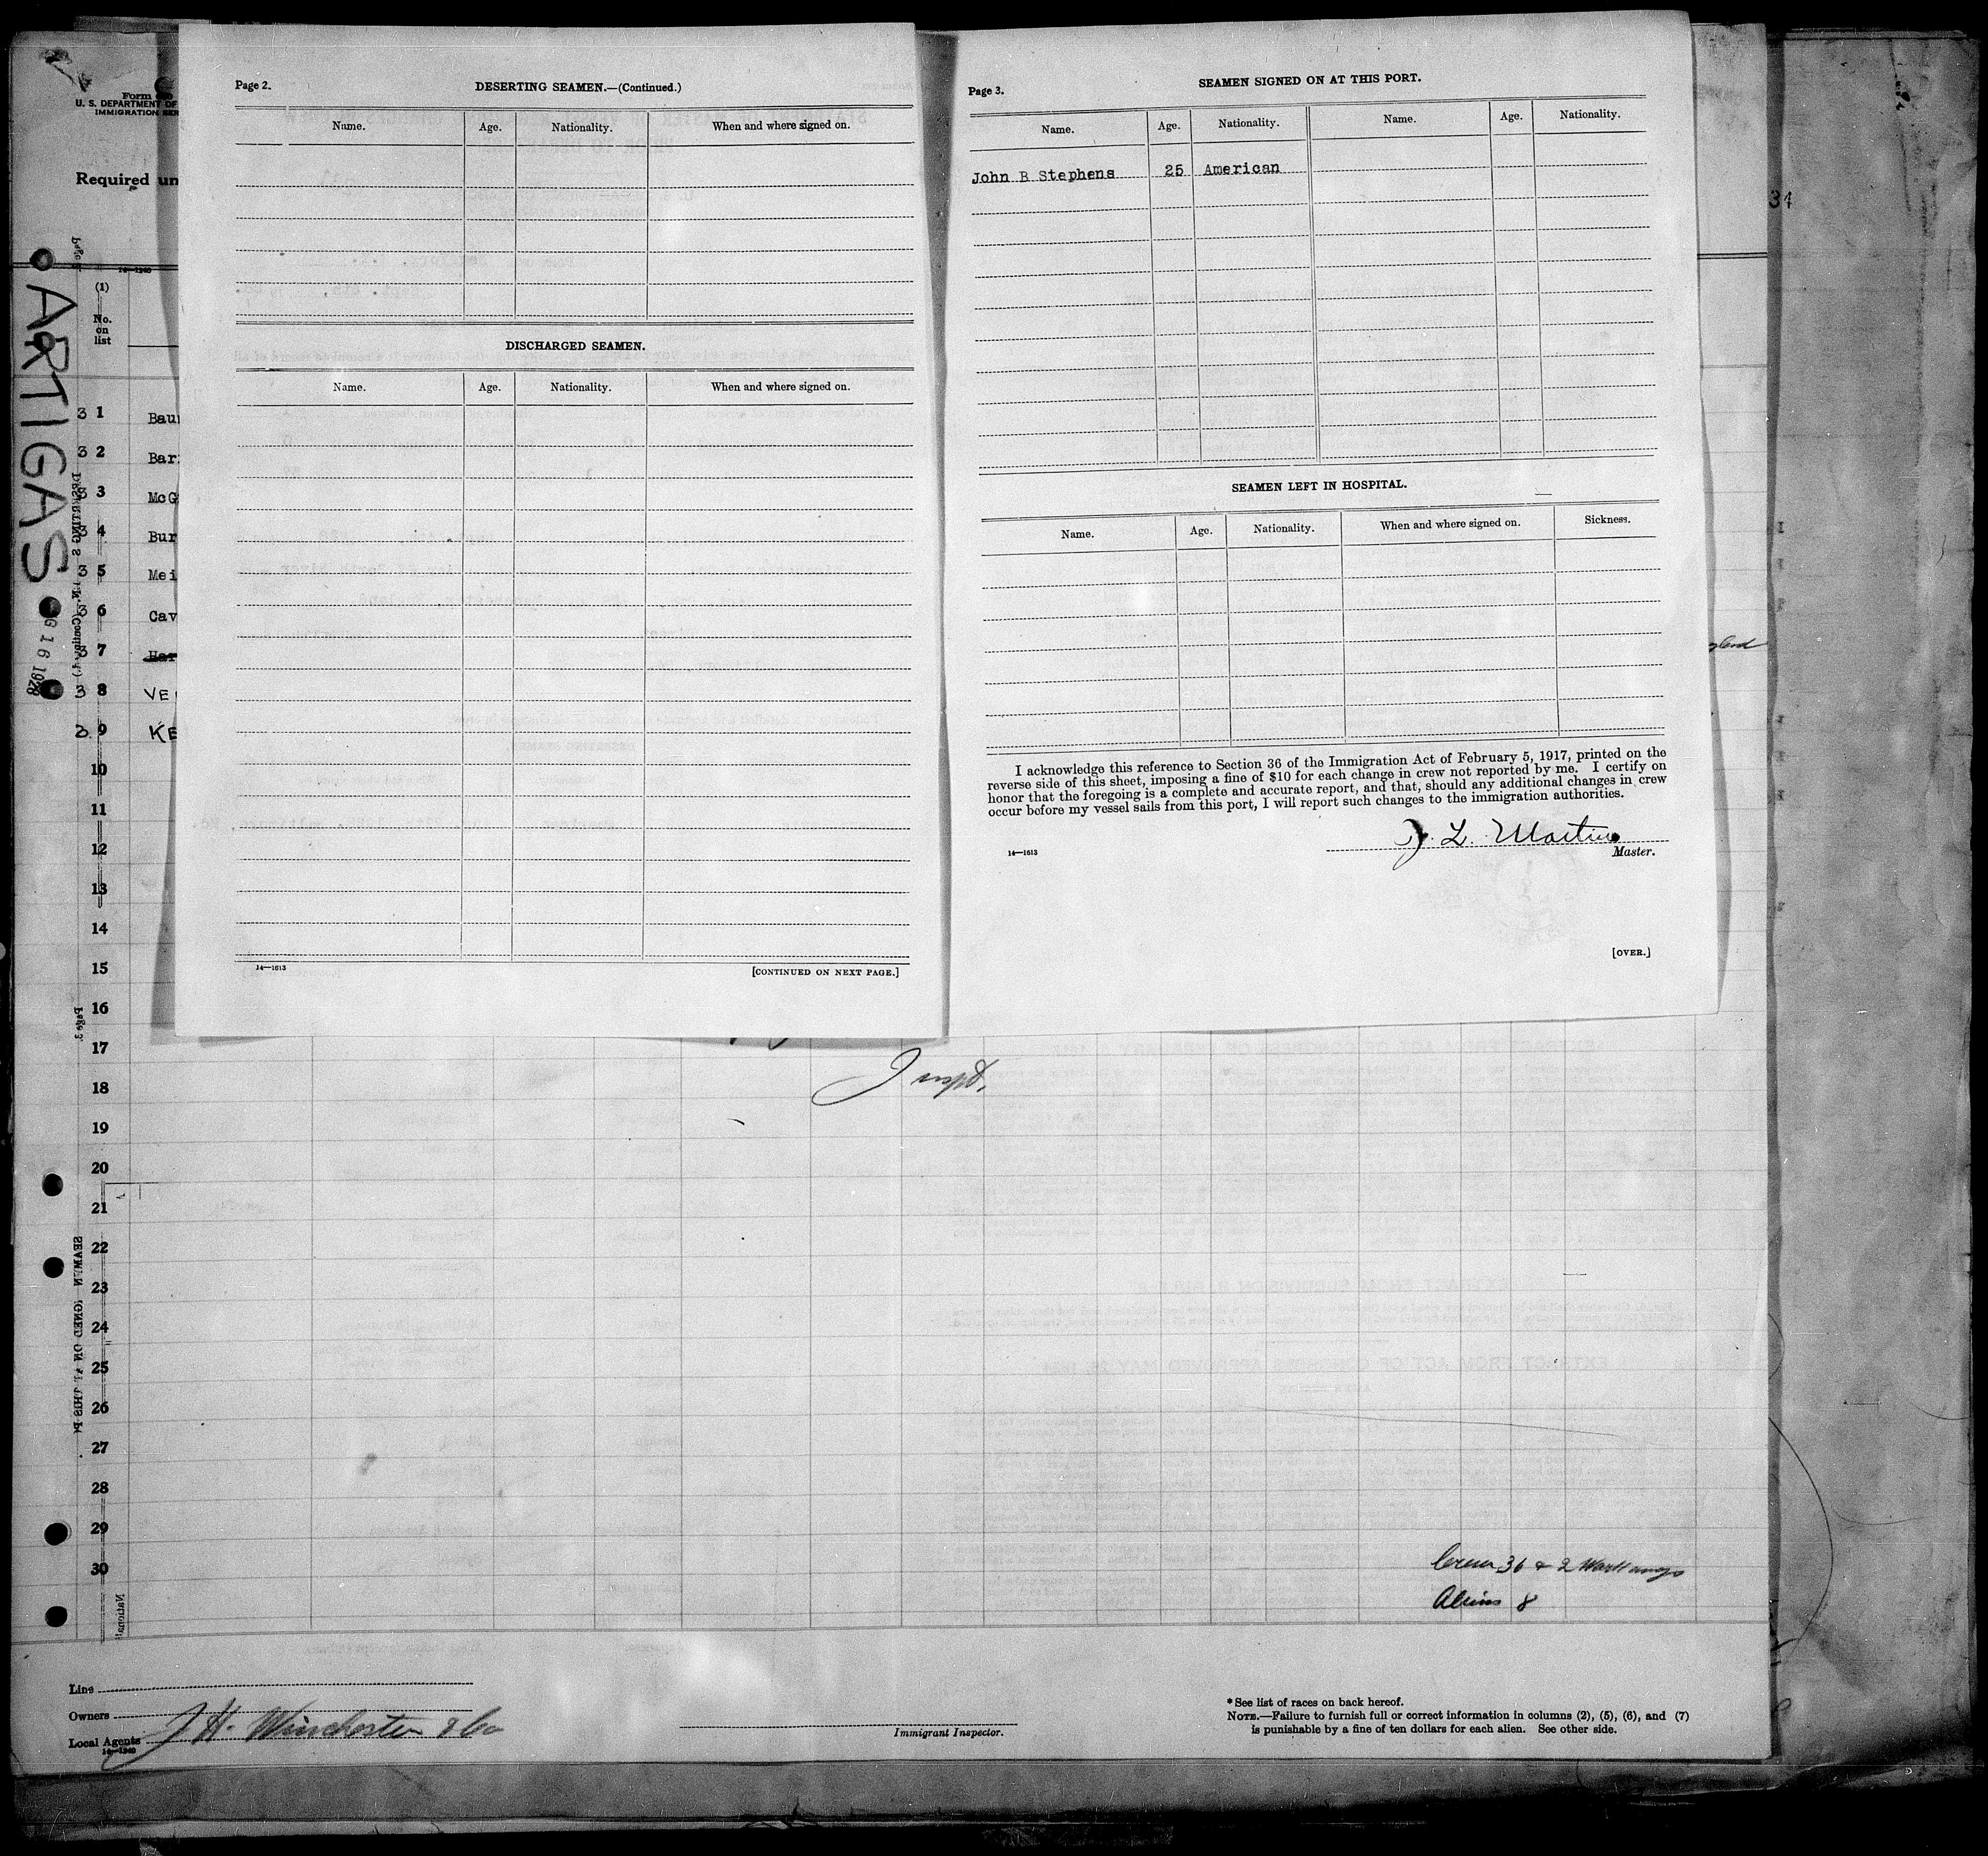 Form
U. S. DEPARTMENT OF
IMMIGRATION SER
Required un
14—1240
(1)
No.
on
list
ARTIGAS
16 1928
3 1 Bau
3 2 Bar
3 3 McG
3 4 Bur
3 5 Mei
3 6 Cav
3 7 Har
3 8 VE
3 9 KE
10
11
12
13
14
15
16
17
18
19
20
21
22
23
24
25
26
27
28
29
30
Page 2.
DESERTING SEAMEN.—(Continued.)
Name. Age. Nationality. When and where signed on.
DISCHARGED SEAMEN.
Name. Age. Nationality. When and where signed on.
14—1613
[CONTINUED ON NEXT PAGE.]
Page 3.
SEAMEN SIGNED ON AT THIS PORT.
Name. Age. Nationality. Name. Age. Nationality.
John B Stephens 25 American
SEAMEN LEFT IN HOSPITAL.
Name. Age. Nationality. When and where signed on. Sickness.
I acknowledge this reference to Section 36 of the Immigration Act of February 5, 1917, printed on the
reverse side of this sheet, imposing a fine of $10 for each change in crew not reported by me. I certify on
honor that the foregoing is a complete and accurate report, and that, should any additional changes in crew
occur before my vessel sails from this port, I will report such changes to the immigration authorities.
L. Martin
14—1613
Master.
[OVER.]
34
gland
Inspt.
Crew 36 & 2 Workaways
Aliens 8
Line
Owners
Local Agents J H. Winchester & Co
14—1240
Immigrant Inspector.
* See list of races on back hereof.
NOTE.—Failure to furnish full or correct information in columns (2), (5), (6), and (7)
is punishable by a fine of ten dollars for each alien. See other side.